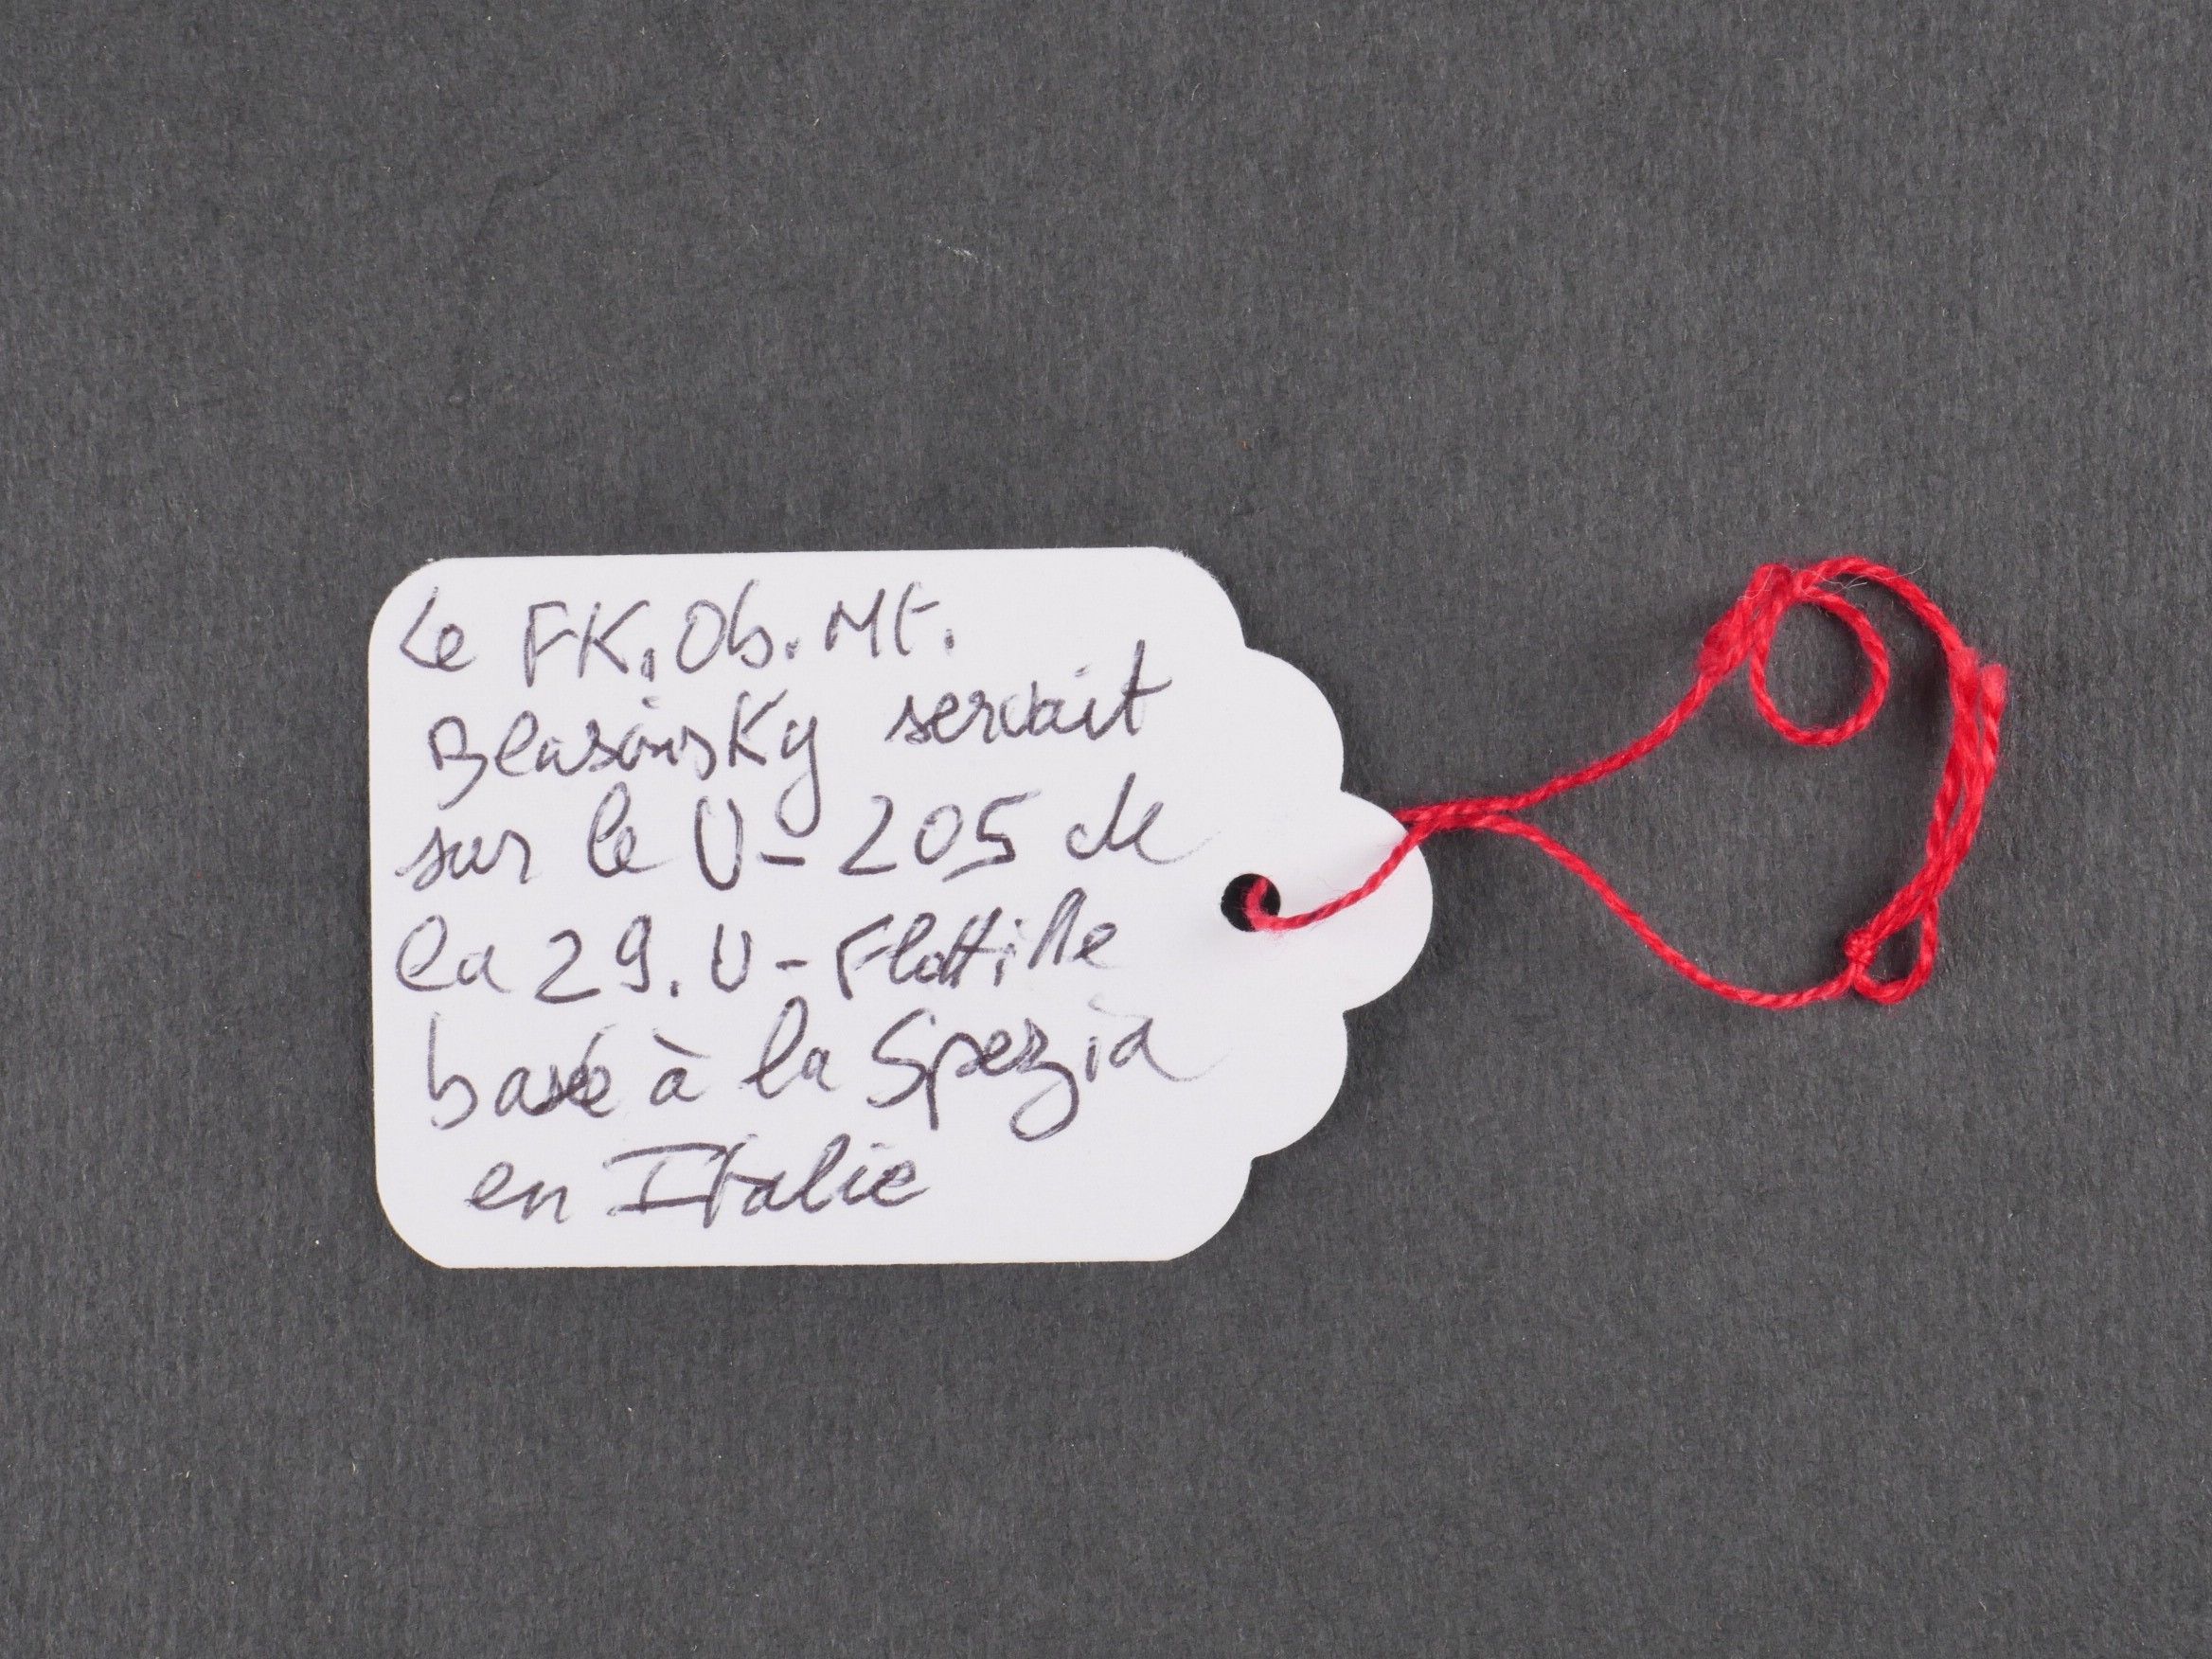 Le FK. Ob. Mt.
Blasinsky servait
sur le U-205 de
la 29. U-Flottille
basé à la Spezia
en Italie